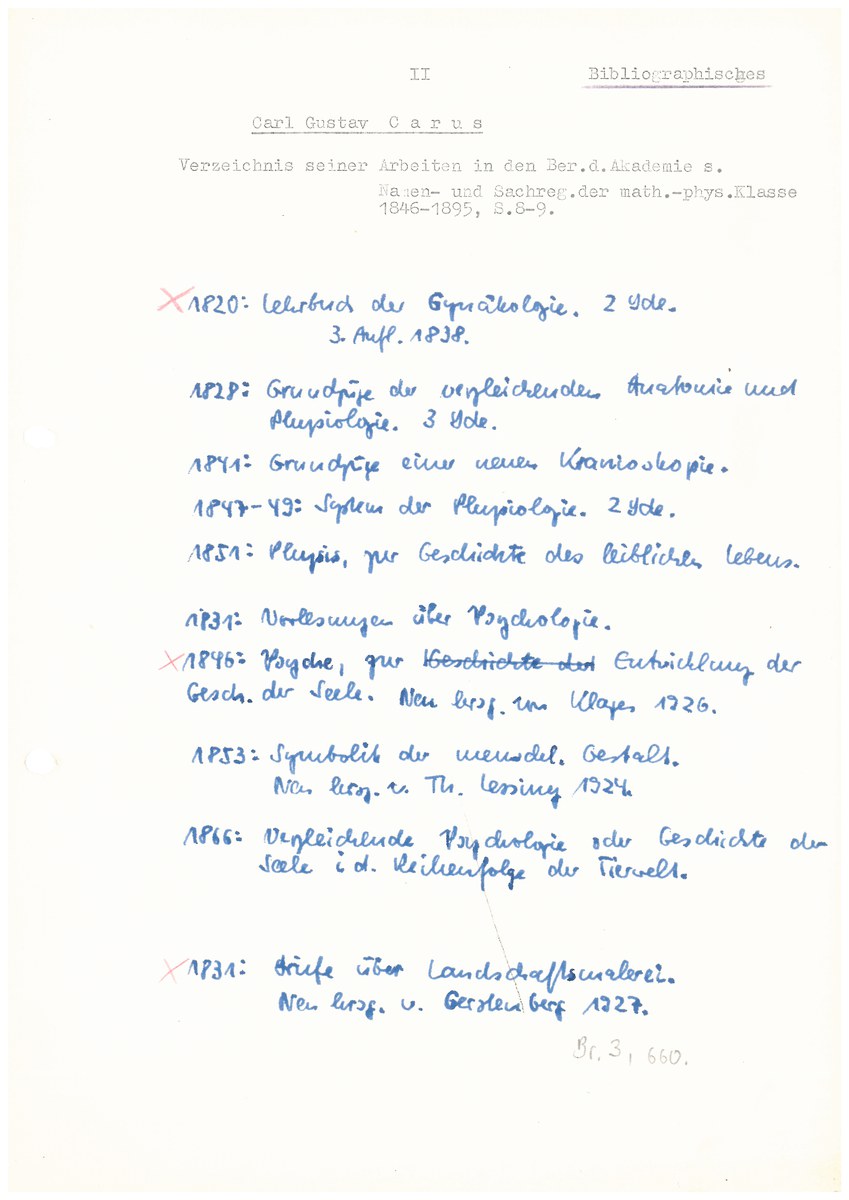 II
Bibliographisches
Carl Gustav Carus
Verzeichnis seiner Arbeiten in den Ber.d.Akademie s.
Namen- und Sachreg.der math.-phys.Klasse
1846-1895, S.8-9.
1820: Lehrbuch der Gynäkologie. 2 Bde.
3. Aufl. 1838.
1828: Grundzüge der vergleichenden Anatomie und
Physiologie. 3 Bde.
1841: Grundzüge einer neuen Kranioskopie.
1847-49: System der Physiologie. 2 Bde.
1851: Physis, zur Geschichte des leiblichen Lebens.
1831: Vorlesungen über Psychologie.
1846: Psyche, zur Geschichte der Entwicklung der
Gesch. der Seele. Neu hrsg. von Klages 1926.
1853: Symbolik der menschl. Gestalt.
Neu hrsg. v. Th. Lessing 1924.
1866: Vergleichende Psychologie oder Geschichte der
Seele i d. Reihenfolge der Tierwelt.
1831: Briefe über Landschaftsmalerei.
Neu hrsg. v. Gerstenberg 1927.
Br. 3, 660.